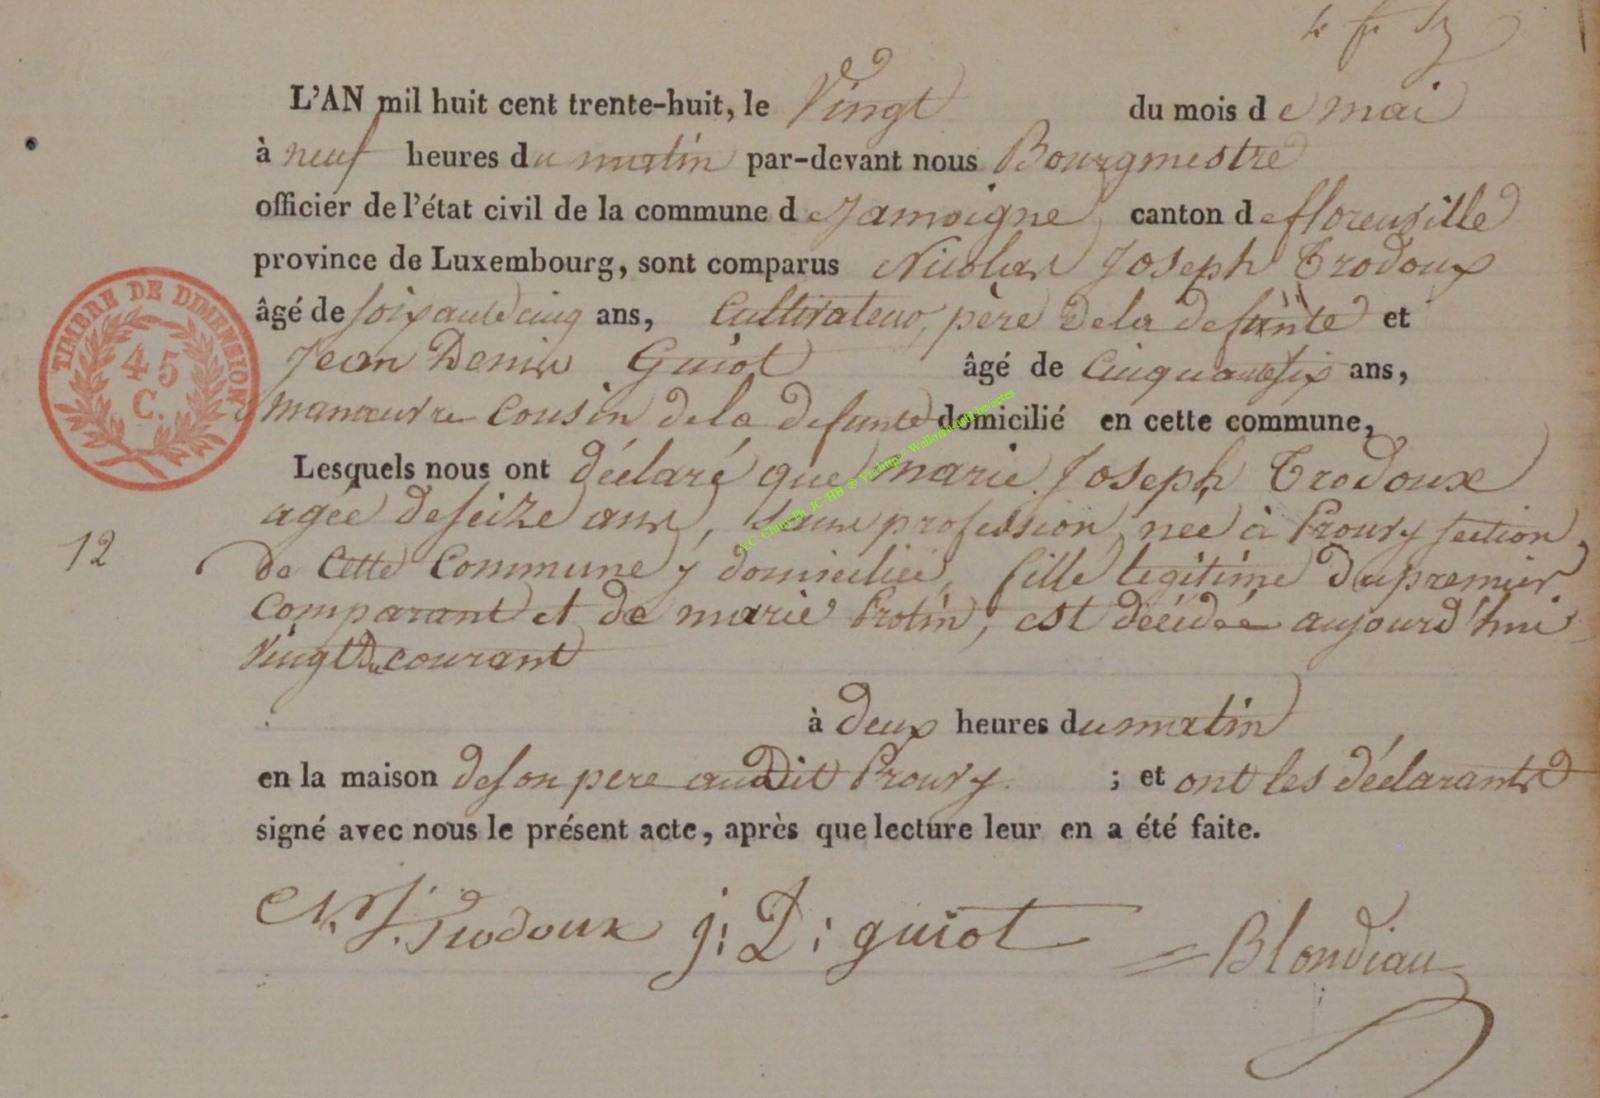 L'AN mil huit cent trente-huit, le Vingt du mois de mai
à neuf heures du matin par-devant nous Bourgmestre
officier de l'état civil de la commune de Jamoigne canton de florenville
province de Luxembourg, sont comparus Nicolas Joseph Trodoux
âgé de soixante cinq ans, Cultivateur, père de la defunte et
Jean Denis Guiot âgé de Cinquante six ans,
manœuvre Cousin de la defunte domicilié en cette commune,
Lesquels nous ont déclaré que marie Joseph Trodoux
agée de seize ans, sans profession, née à Prouvy section
12
de Cette Commune y domiciliée, fille legitime du premier
Comparant et de marie Protin, est décédée aujourd'hui
Vingt du courant
à deux heures du matin
en la maison de son pere audit Prouvy ; et ont les déclarants
signé avec nous le présent acte, après que lecture leur en a été faite.
N. J. Trodoux j: D: guiot Blondiau
TIMBRE DE DIMENSION
45
C.